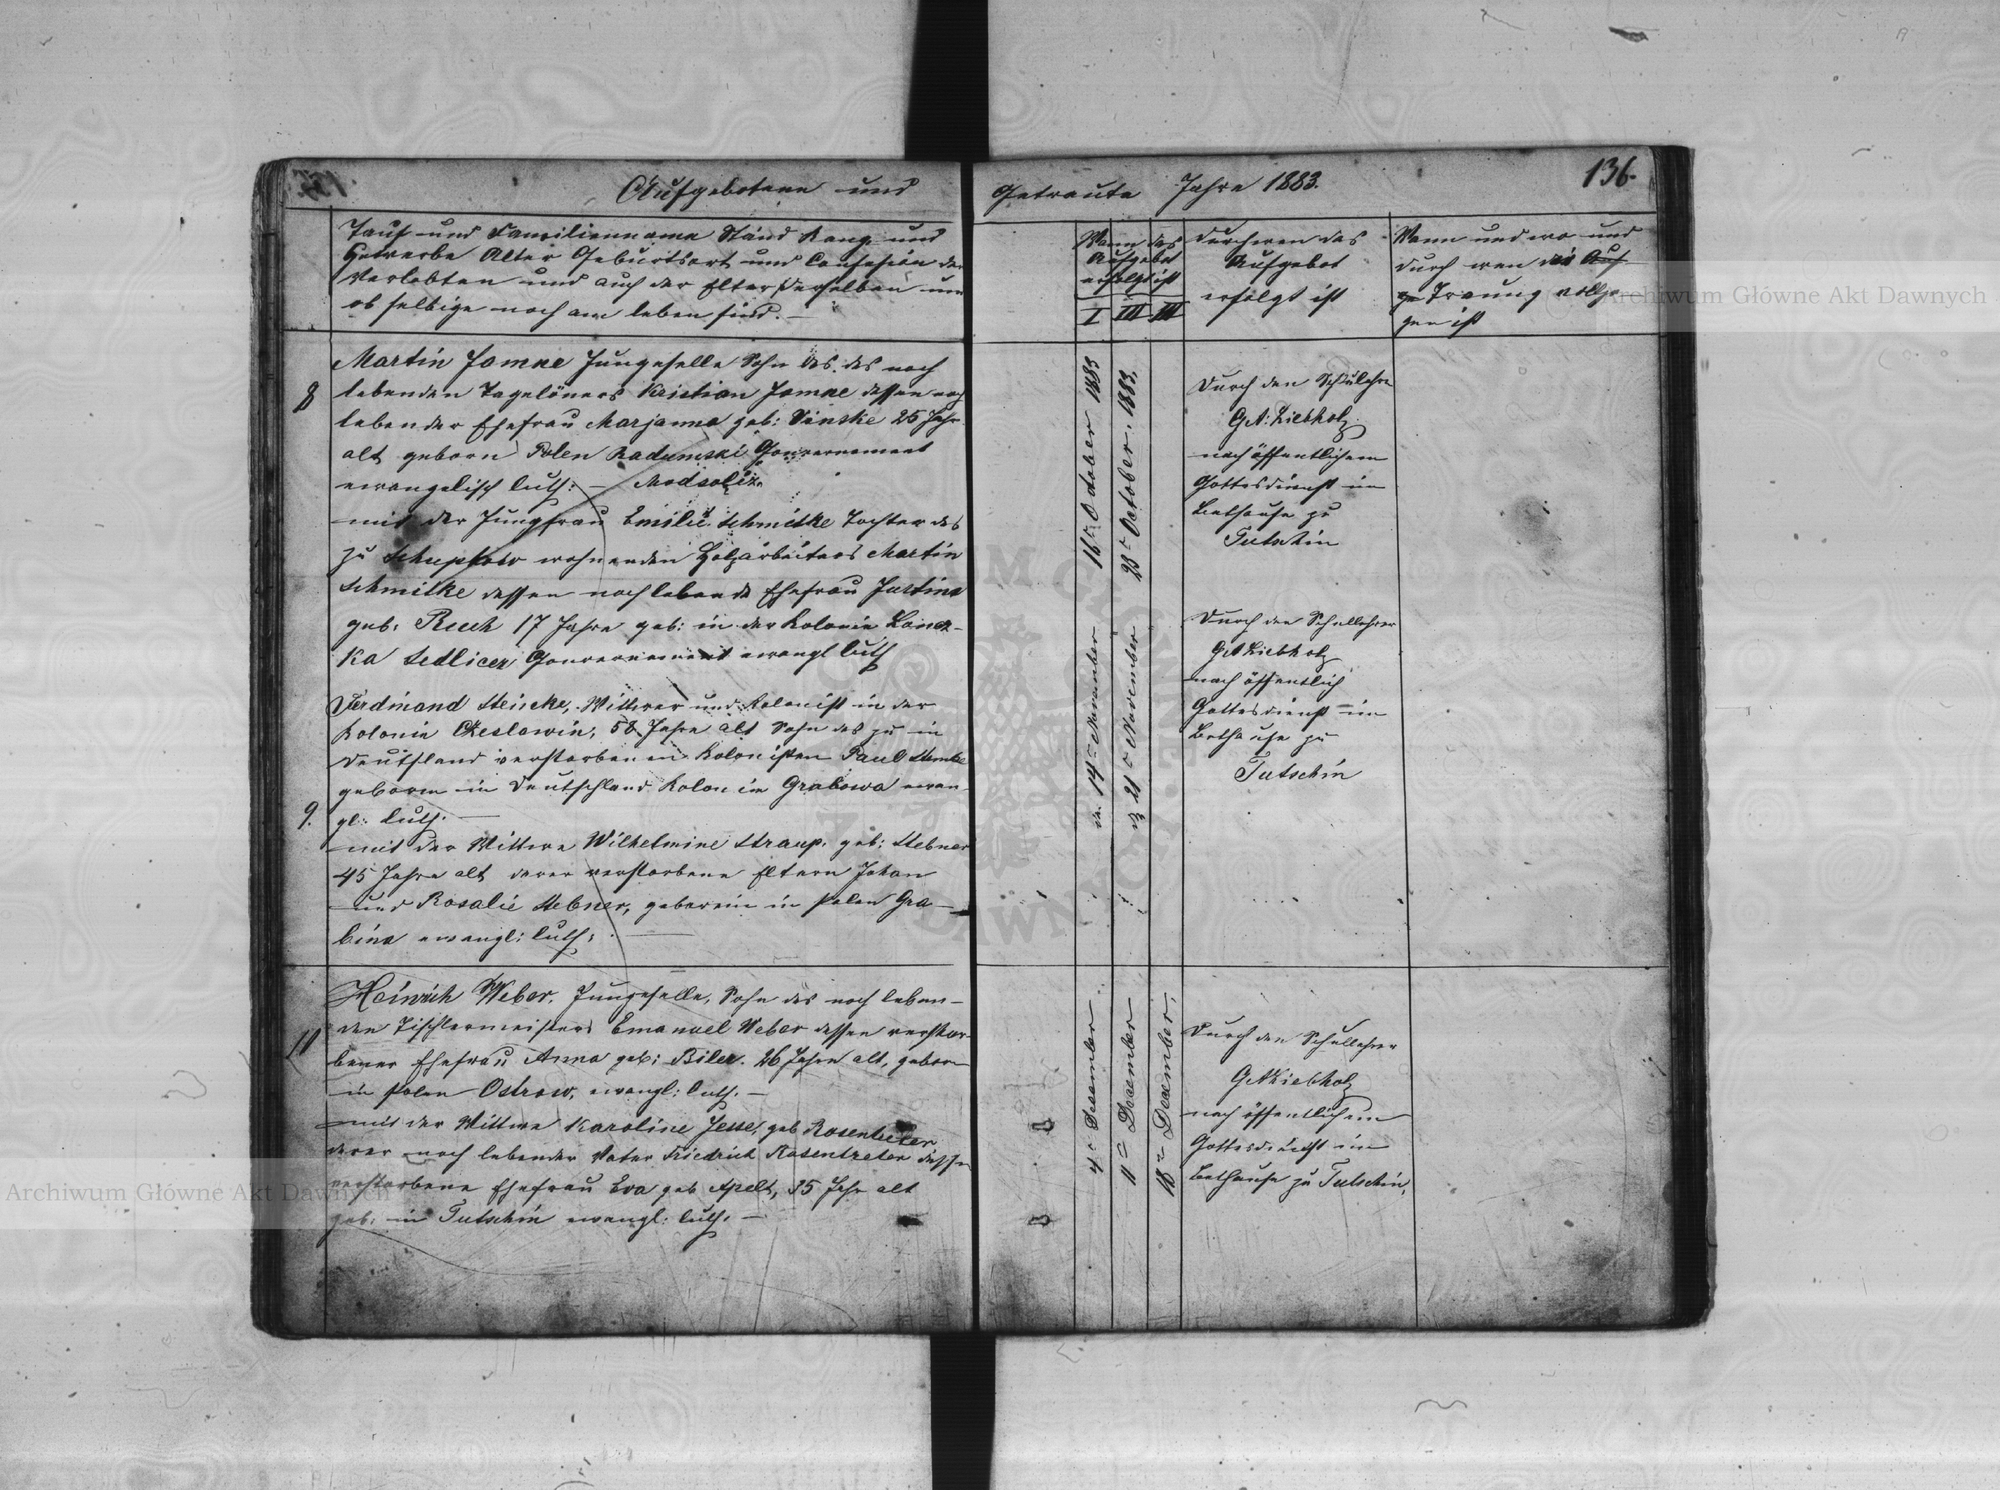 Aufgebotene und
Getraute Jahre 1883.
136.
Tauf und Familienname Stand Rang und
Gewerbe Alter Geburtsort und Confession der
Verlobten und auch der Elter derselben und
ob selbige noch am leben sind. —
Wann das
Aufgebot
erfolgt ist
I II III
durch wen das
Aufgebot
erfolgt ist
Wann und wo und
durch wen die Auf
ge Trauung vollzo
gen ist
8
Martin Jamne Junggeselle Sohn des des noch
lebenden Tagelöners Kristian Jamne dessen noch
lebender Ehefrau Marjanna geb: Vinske 25 Jahr
alt geborn Polen Radumski Gouvernement
ewangelisch luth: —
mit der Jungfrau Emilie Schmitke Tochter des
zu wohnenden Holzarbeiters Martin
Schmitke dessen noch lebende Ehefrau Justine
geb: 17 Jahre geb: in der Kolonie
ka Sedlicer Gouvernement ewangl luth
16ten October 1883
23ten October. 1883.
Durch den Schulehrer
G.A. Liebholz
nach öffentlichem
Gottesdienst im
Bethause zu
Tutschin
9.
Ferdinand Steincke, Wittwer und Kolonist in der
Kolonie 58 Jahre alt Sohn des zu in
Deutsland verstorbenen Kolonisten Paul
geboren in Deutschland Kolonie Grabowa ewan
gl: luth. —
mit der Wittwe Wilhelmine Straup. geb: Stebner
45 Jahre alt derer verstorbene Eltern Johan
und Rosalie Stebner, geboren in Polen Gra—
bina ewangl: luth: —
14ten November
21ten November
Durch den Schullehrer
G A Liebholz
nach öffentlich
Gottesdienst im
Bethause zu
Tutschin
10
Heinrich Weber, Junggeselle, Sohn des noch leben—
den Tischlermeisters Emanuel Weber dessen verstor-
bener Ehefrau Anna geb: Biler. 26 Jahre alt, geboren
in Polen Ostrow, ewangl: luth. —
mit der Wittwe Karoline Jesse, geb Rosentreter
derer noch lebender Vater Friedrich Rosentreter dessen
verstorbene Ehefrau Eva geb Apelt, 35 Jahr alt
geb: in Tutschin ewangl: luth. —
4ten Desember
11ten Desember
18ten Desember,
Durch den Schullehrer
G A Liebholz
nach öffentlichem
Gottesdienst im
Bethause zu Tutschin,
Archiwum Główne Akt Dawnych
Archiwum Główne Akt Dawnych